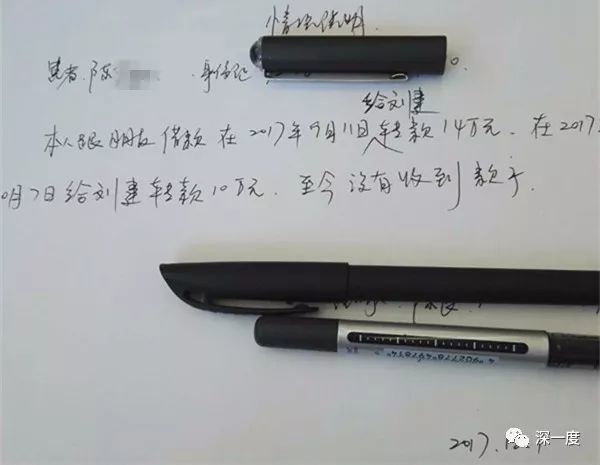 情况说明
患者:陈 身份证 0.
给刘建
本人跟朋友借款在2017年9月11日转款14万元.在2017.
0月7日给刘建转款10万元.至今没有收到款子.
2017.
深一度